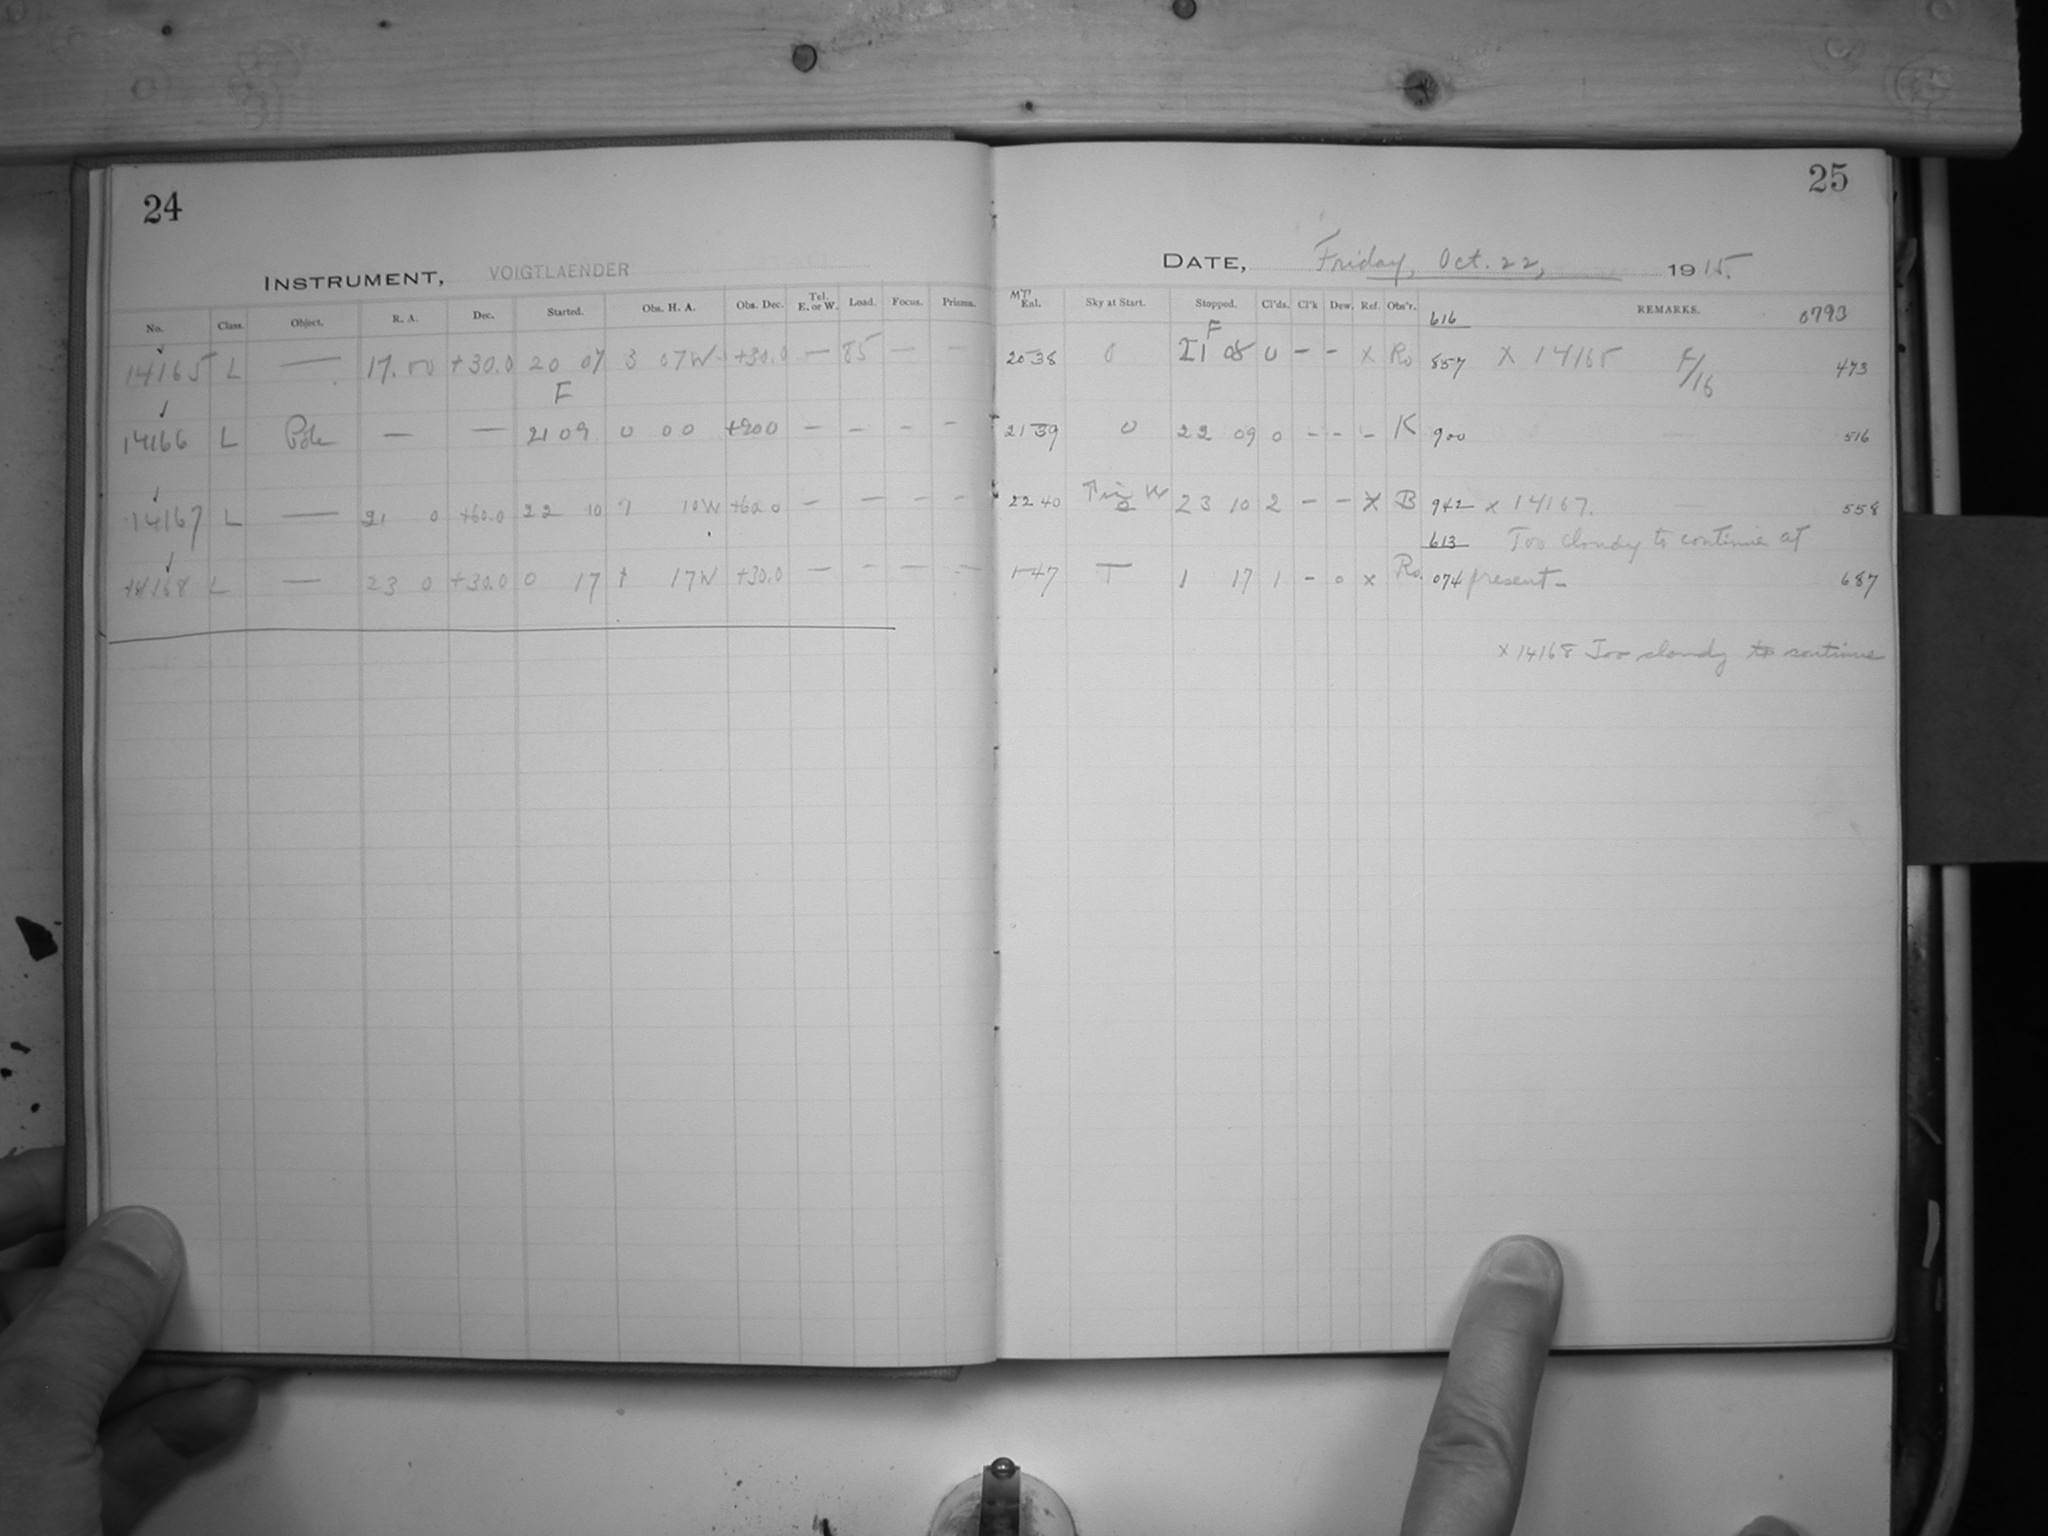 24
INSTRUMENT, VOIGTLAENDER
No. Class. Object. R. A. Dec. Started. Obs. H. A. Obs. Dec. Tel. E. or W. Load. Focus. Prisms.
14165 L — 17.00 +30.0 20 07 3 07W +30.0 — 85 — —
F
14166 L Pole — — 21 09 0 00 +90 0 — — — —
14167 L — 21 0 +60.0 22 10 1 10W +60.0 — — — —
14168 L — 23 0 +30.0 0 17 1 17W +30.0 — — — —
25
DATE, Friday, Oct. 22, 1915.
MT Exl. Sky at Start. Stopped. Cl'ds. Cl'k Dew. Ref. Obs'r. 616 REMARKS. 0793
F
20 38 0 21 08 0 — — X Ro 857 X 14165 F/16 473
21 39 0 22 09 0 - - - K 900 516
22 40 W 23 10 2 — — X B 942 x 14167. 558
613 Too cloudy to continue at
1 47 T 1 17 1 - 0 x Ro. 074 present - 687
x 14168 Too cloudy to continue